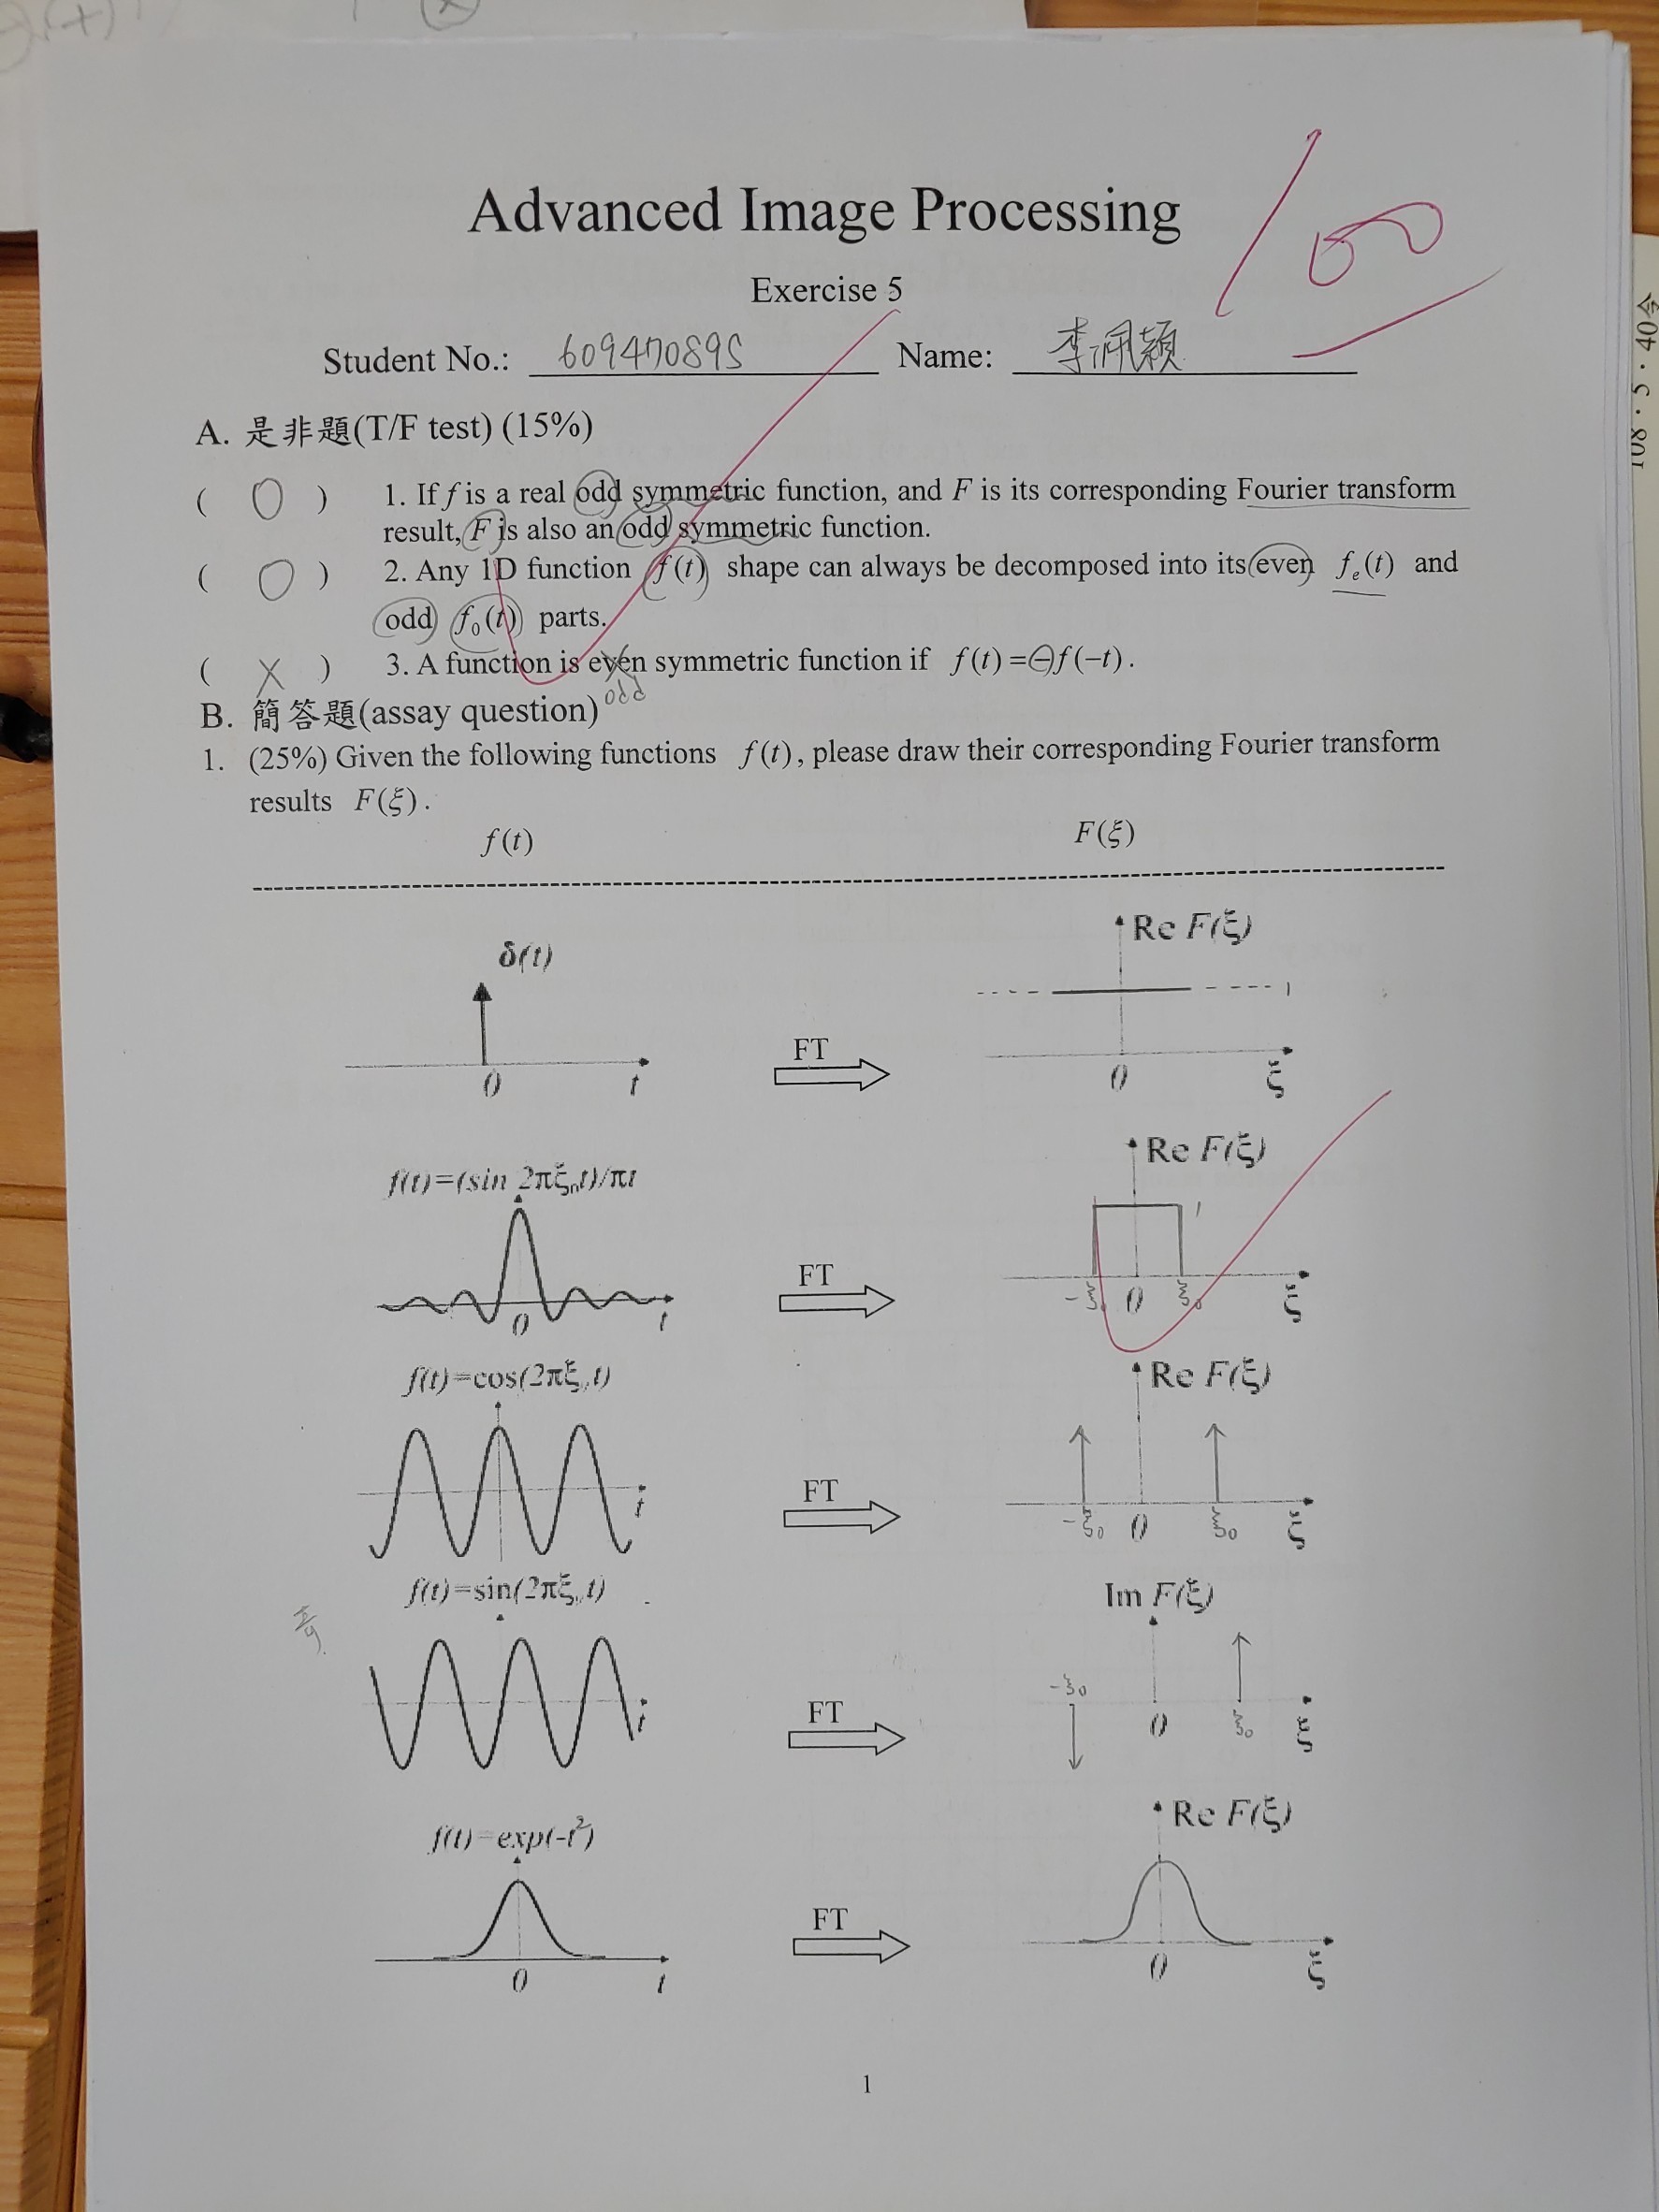 Advanced Image Processing
100
Exercise 5
Student No.: 609470895 Name: 李佩穎
A. 是非題(T/F test) (15%)
( O ) 1. If f is a real odd symmetric function, and F is its corresponding Fourier transform
result, F is also an odd symmetric function.
( O ) 2. Any 1D function f(t) shape can always be decomposed into its even fₑ(t) and
odd f₀(t) parts.
( X ) 3. A function is even symmetric function if f(t)=−f(−t).
odd
B. 簡答題(assay question)
1. (25%) Given the following functions f(t), please draw their corresponding Fourier transform
results F(ξ).
f(t) F(ξ)
δ(t) Re F(ξ)
1
FT
0 t 0 ξ
f(t)=(sin 2πξ₀t)/πt Re F(ξ)
1
FT
0 t -ξ₀ 0 ξ₀ ξ
f(t)=cos(2πξ₀t) Re F(ξ)
FT
t -ξ₀ 0 ξ₀ ξ
f(t)=sin(2πξ₀t) Im F(ξ)
奇
-ξ₀
FT
t 0 ξ₀ ξ
f(t)=exp(-t²) Re F(ξ)
FT
0 t 0 ξ
1
108·5·40令